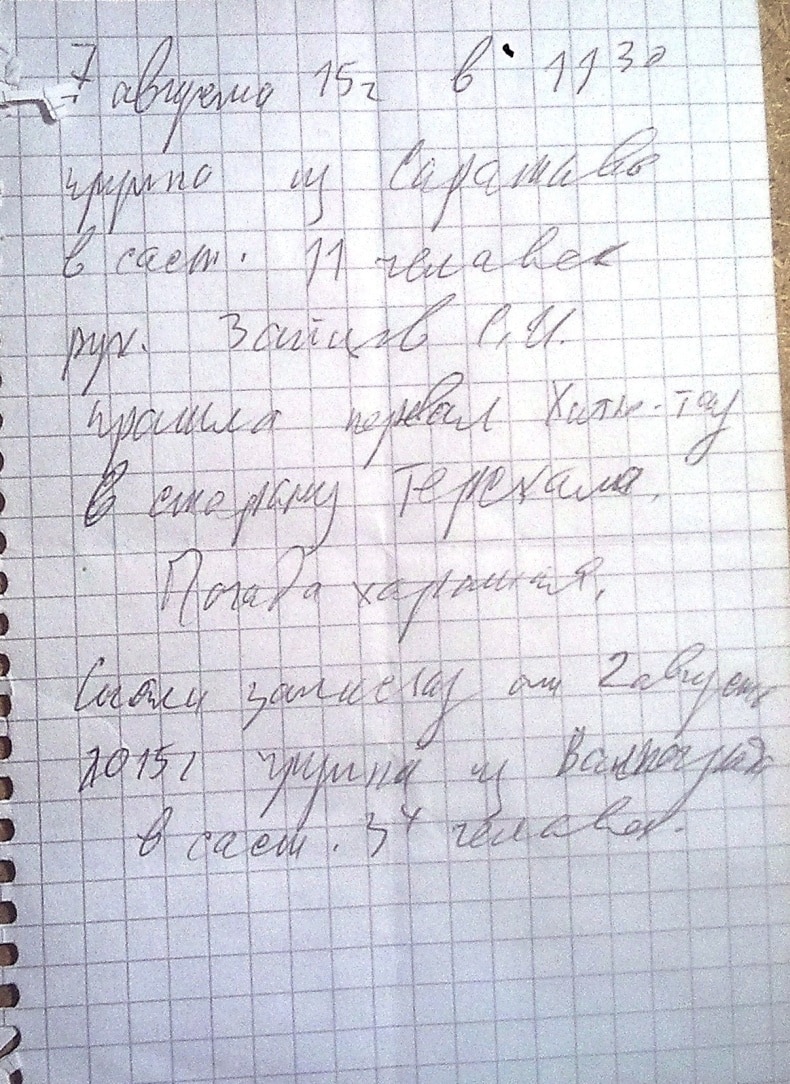 7 августа 15г в 11 30
группа из Саратова
в сост. 11 человек
рук. Зайцев С.И.
прошла перевал Хотю-тау
в сторону Терскола.
Погода хорошая.
Сняли записку от 2 августа
2015г группа из Волгограда
в сост. 3х человек.